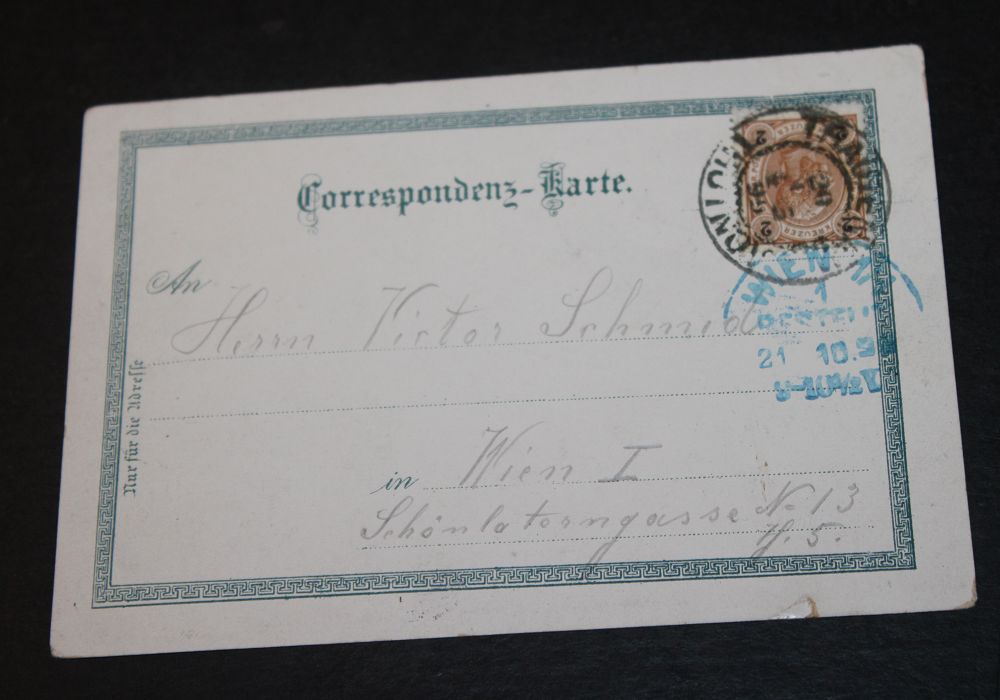 Correspondenz-Karte.
An
Herrn Victor Schmid
Nur für die Adresse
in Wien I
Schönlaterngasse No 13
2 KREUZER
WIEN
1
BESTELLT
21 10.9